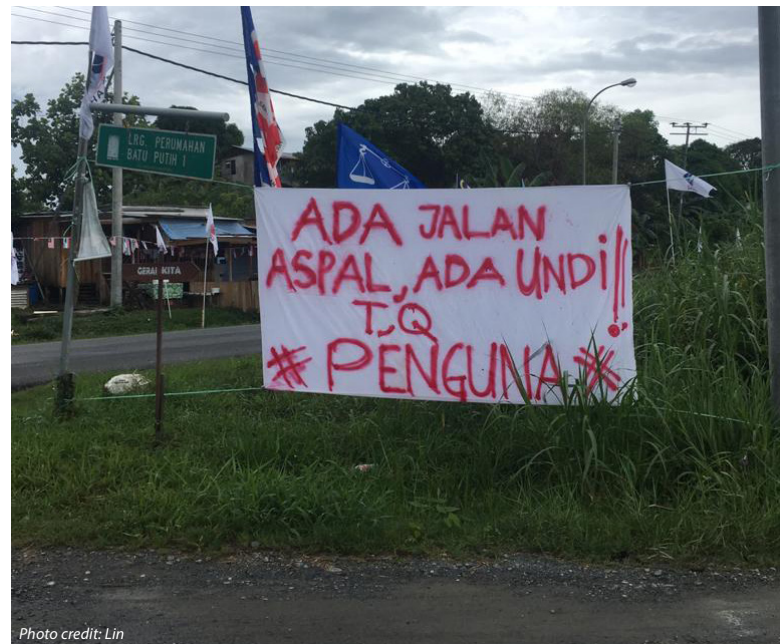 LRG. PERUMAHAN
BATU PUTIH 1
GERAI KITA
ADA JALAN
ASPAL, ADA UNDi!!
T,Q
# PENGUNA #
Photo credit: Lin